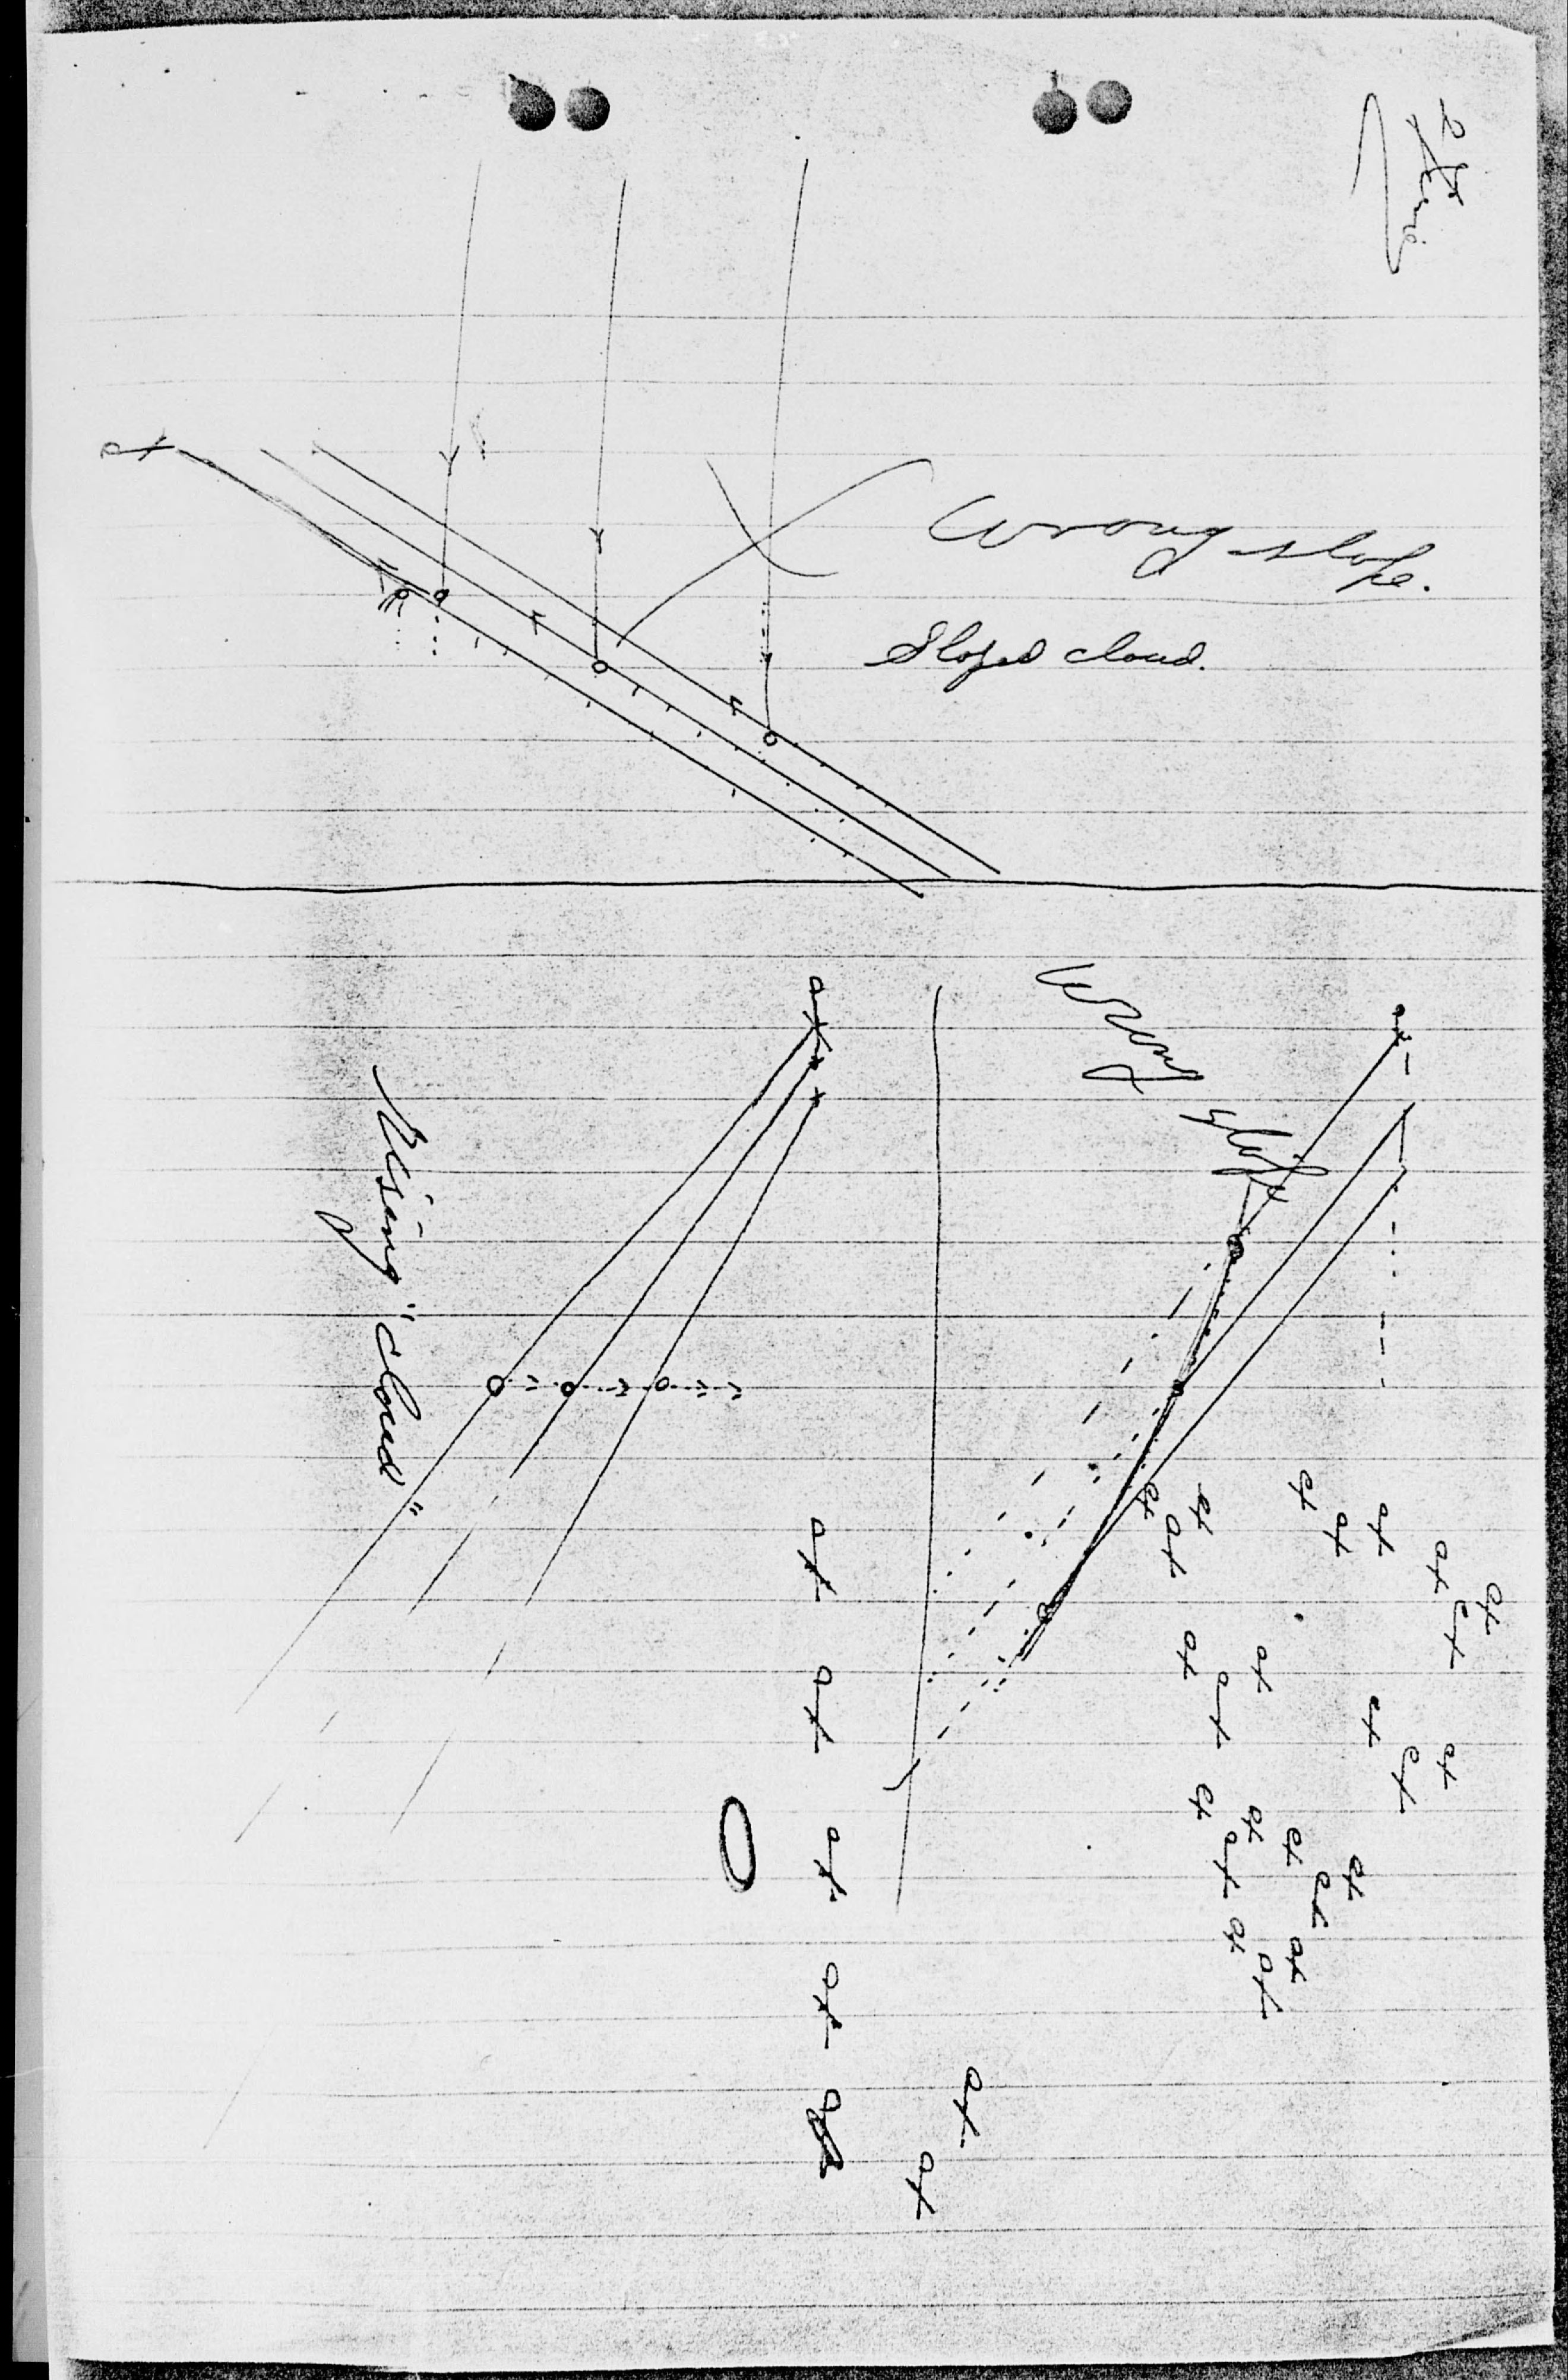 Wrong slope.
Sloped cloud.
Wrong slope
Rising "cloud"